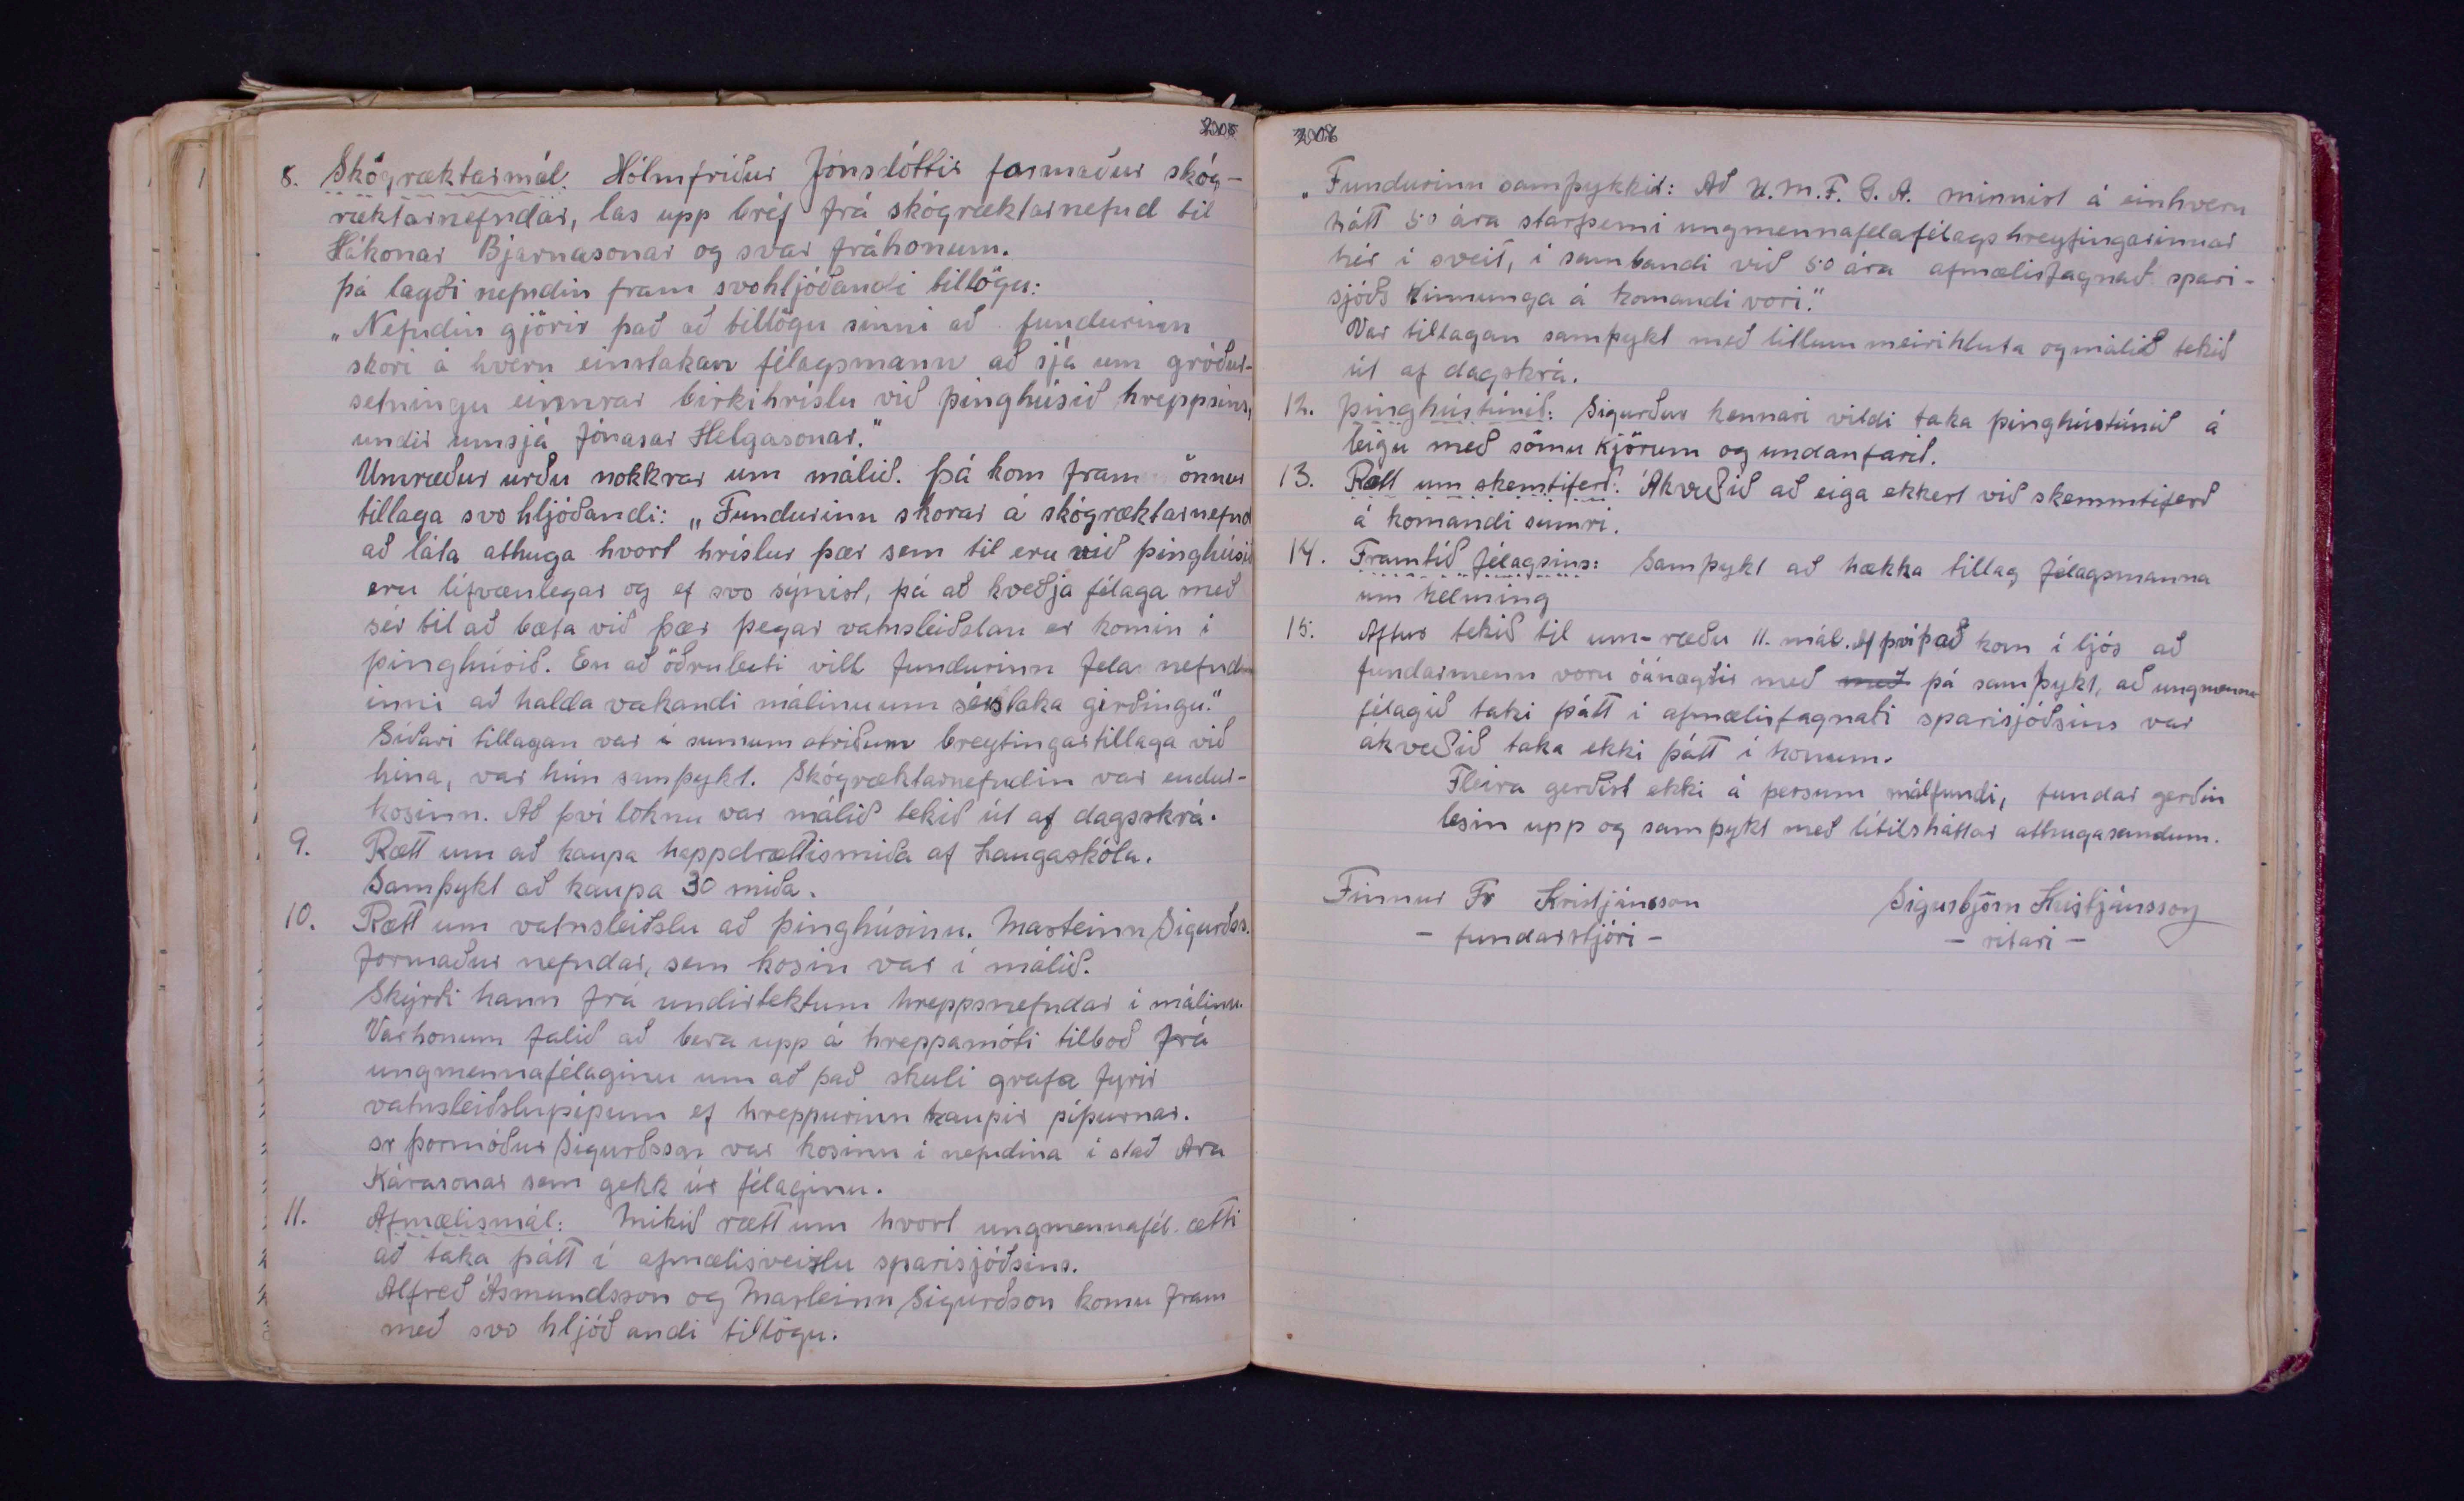 8. Skógræktarmál. Hólmfríður Jónsdóttir formaður skóg-
ræktarnefndar, las upp bréf frá skógræktarnefnd til
Hákonar Bjarnasonar og svar fráhonum.
þá lagði nefndin fram svohljóðandi tillögu:
„Nefndin gjörir það að tillögu sinni að fundurinn
skori á hvern einstakan félagsmann að sjá um gróður-
setningu einnrar birkihríslu við þinghúsið hreppsins,
undir umsjá Jónasar Helgasonar."
Umræður urðu nokkrar um málið. Þá kom fram önnur
tillaga svo hljóðandi: „Fundurinn skorar á skógræktarnefnd
að láta athuga hvort hríslur þær sem til eru við þinghúsið
eru lífvænlegar og ef svo sýnist, þá að kveðja félaga með
sér til að bæta við þær þegar vatnsleiðslan er komin í
þinghúsið. En að öðruleiti vill fundurinn fela nefndin
inni að halda vakandi málinu um sérstaka girðingu."
Síðari tillagan var í sumum atriðum breytingartillaga við
hina, var hún samþykt. Skógræktarnefndin var endur-
kosinn. Að því loknu var málið tekið út af dagsskrá.
9. Rætt um að kaupa happdrættismiða af Laugaskóla.
Samþykt að kaupa 30 miða.
10. Rætt um vatnsleiðslu að þinghúsinu. Marteinn Sigurðss.
formaður nefndar, sem kosin var í málið.
Skýrði hann frá undirtektum hreppsnefndar í málinu.
Var honum falið að bera upp á hreppamóti tilboð frá
ungmennafélaginu um að það skuli grafa fyrir
vatnsleiðslupípum ef hreppurinn kaupir pípurnar.
sr Þormóður Sigurðsson var kosinn í nefndina í stað Ara
Kárasonar sem gekk úr félaginu.
11. Afmælismál: Mikið rætt um hvort ungmennafél. ætti
að taka þátt í afmælisveislu sparisjóðsins.
Alfreð Ásmundsson og Marteinn Sigurðson komu fram
með svo hljóðandi tillögu.
„Fundurinn samþykkir: Að U.M.F. G.A. minnist á einhvern
hátt 50 ára starfsemi ungmennafelafélagshreyfingarinnar
hér í sveit, í sambandi við 50 ára afmælisfagnað spari-
sjóðs Kinnunga á komandi vori."
Var tillagan samþykt með litlum meirihluta og málið tekið
út af dagskrá.
12. Þinghústúnið: Sigurður kennari vildi taka þinghústúnið á
leigu með sömu kjörum og undanfarið.
13. Rætt um skemtiferð: Ákveðið að eiga ekkert við skemmtiferð
á komandi sumri.
14. Framtíð félagsins: Samþykt að hækka tillag félagsmanna
um helming
15. Aftur tekið til um-ræðu 11. mál. Af því það kom í ljós að
fundarmenn voru óánægðir með með þá samþykt, að ungmenna
félagið taki þátt í afmælisfagnaði sparisjóðsins var
ákveðið taka ekki þátt í honum.
Fleira gerðist ekki á þessum málfundi, fundar gerðin
lesin upp og samþykt með lítilsháttar athugasemdum.
Finnur Fr Kristjánsson
Sigurbjörn Kristjánsson
- fundarstjóri -
- ritari -